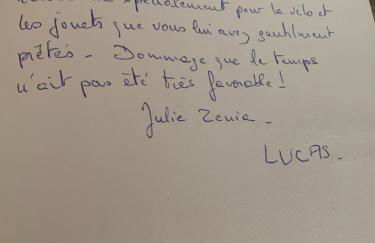 spécialement pour le vélo et
les jouets que vous lui avez gentilment
prêtés - Dommage que le temps
n'ait pas été très favorable !
Julie
LUCAS -